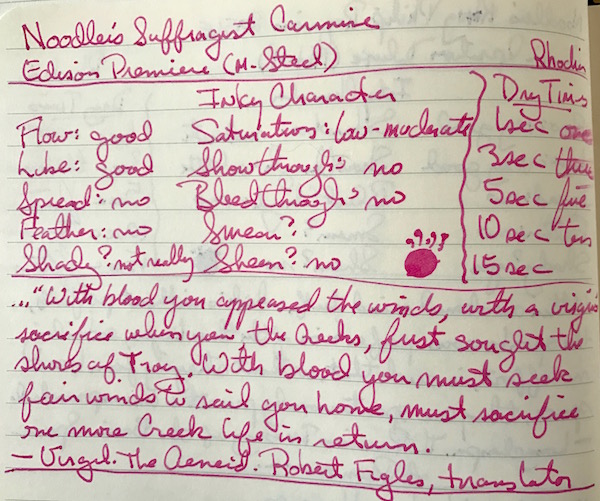 Noodler's Suffragist Carmine
Edison Premiere (M. Steel) Rhodia
Inky Character Dry Times
Flow: good Saturation: low-moderate 1 sec one
Lube: good Show through: no 3 sec three
Spread: no Bleed through: no 5 sec five
Feather: no Smear? 10 sec ten
Shady? not really Sheen? no 15 sec
... "With blood you appeased the winds, with a virgin's
sacrifice when you, the Greeks, first sought the
shores of Troy. With blood you must seek
fair winds to sail you home, must sacrifice
one more Greek life in return.
— Virgil. The Aeneid. Robert Fagles, translator